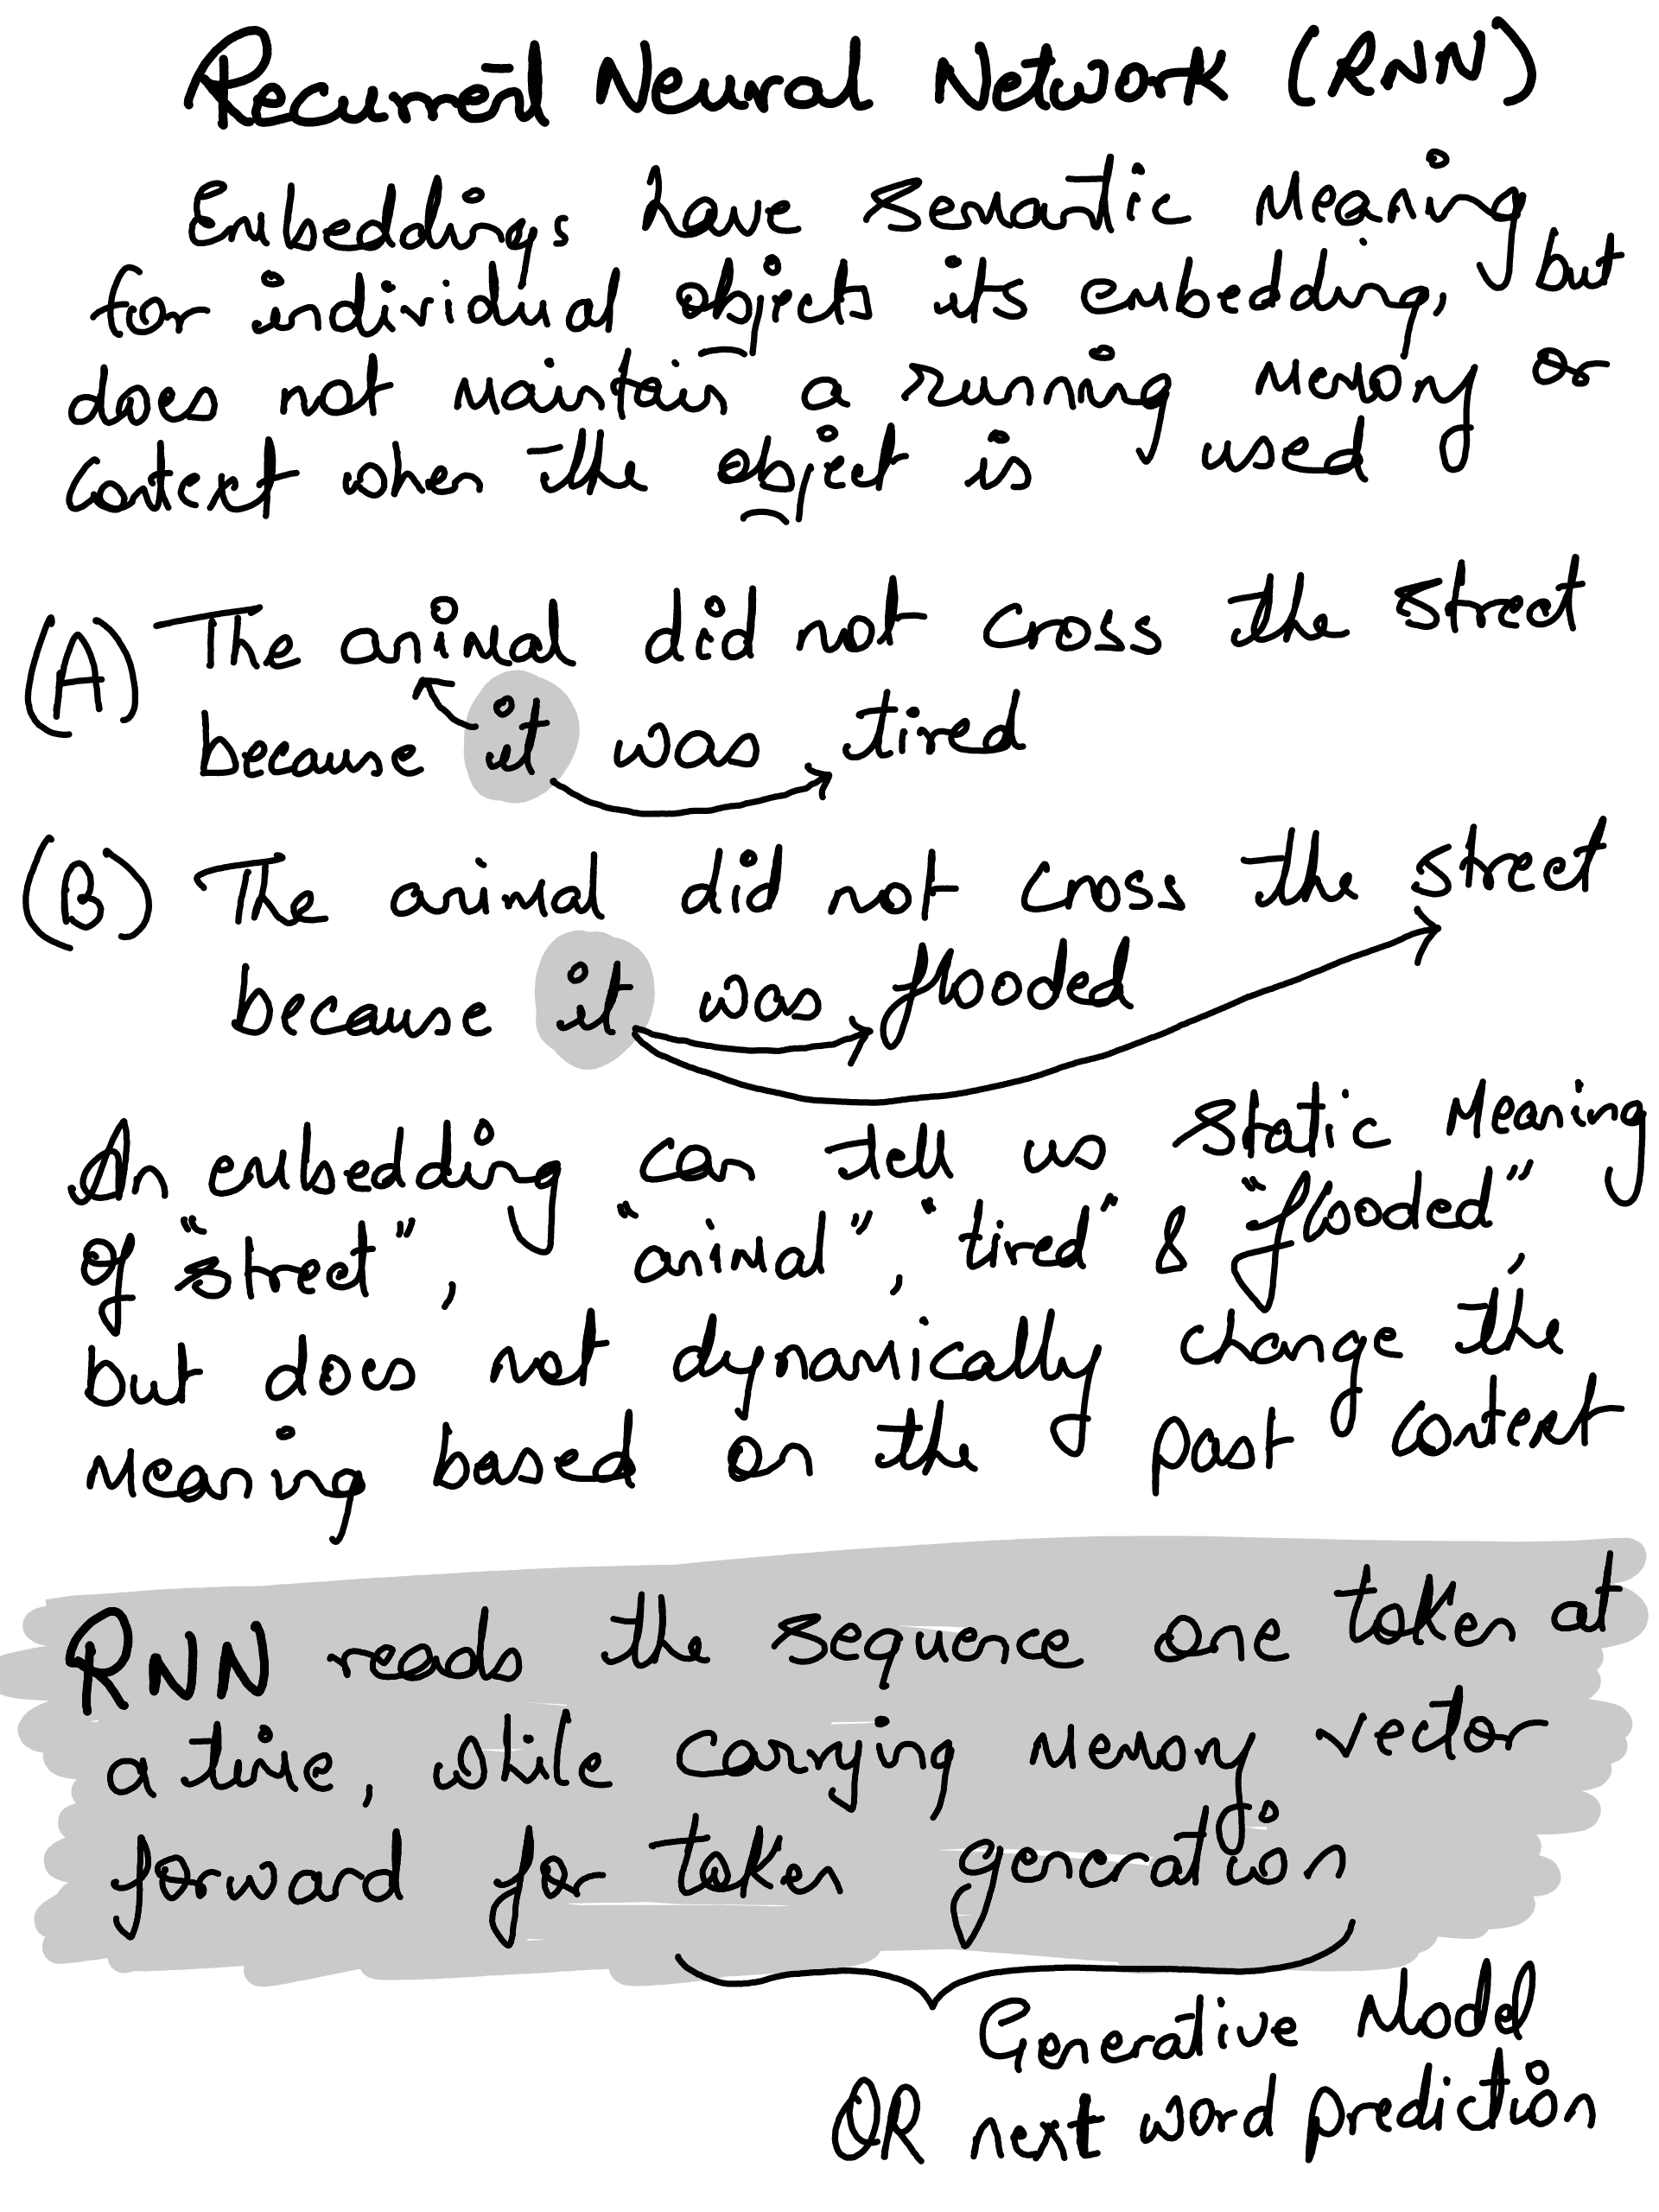 Recurrent Neural Network (RNN)
Embeddings have semantic meaning
for individual objects its embedding, but
does not maintain a running memory or
context when the object is used
(A) The animal did not cross the street
because it was tired
(B) The animal did not cross the street
because it was flooded
An embedding can tell us static meaning
of "street", "animal", "tired" & "flooded",
but does not dynamically change the
meaning based on the past context
RNN reads the sequence one token at
a time, while carrying memory vector
forward for token generation
Generative Model
OR next word prediction